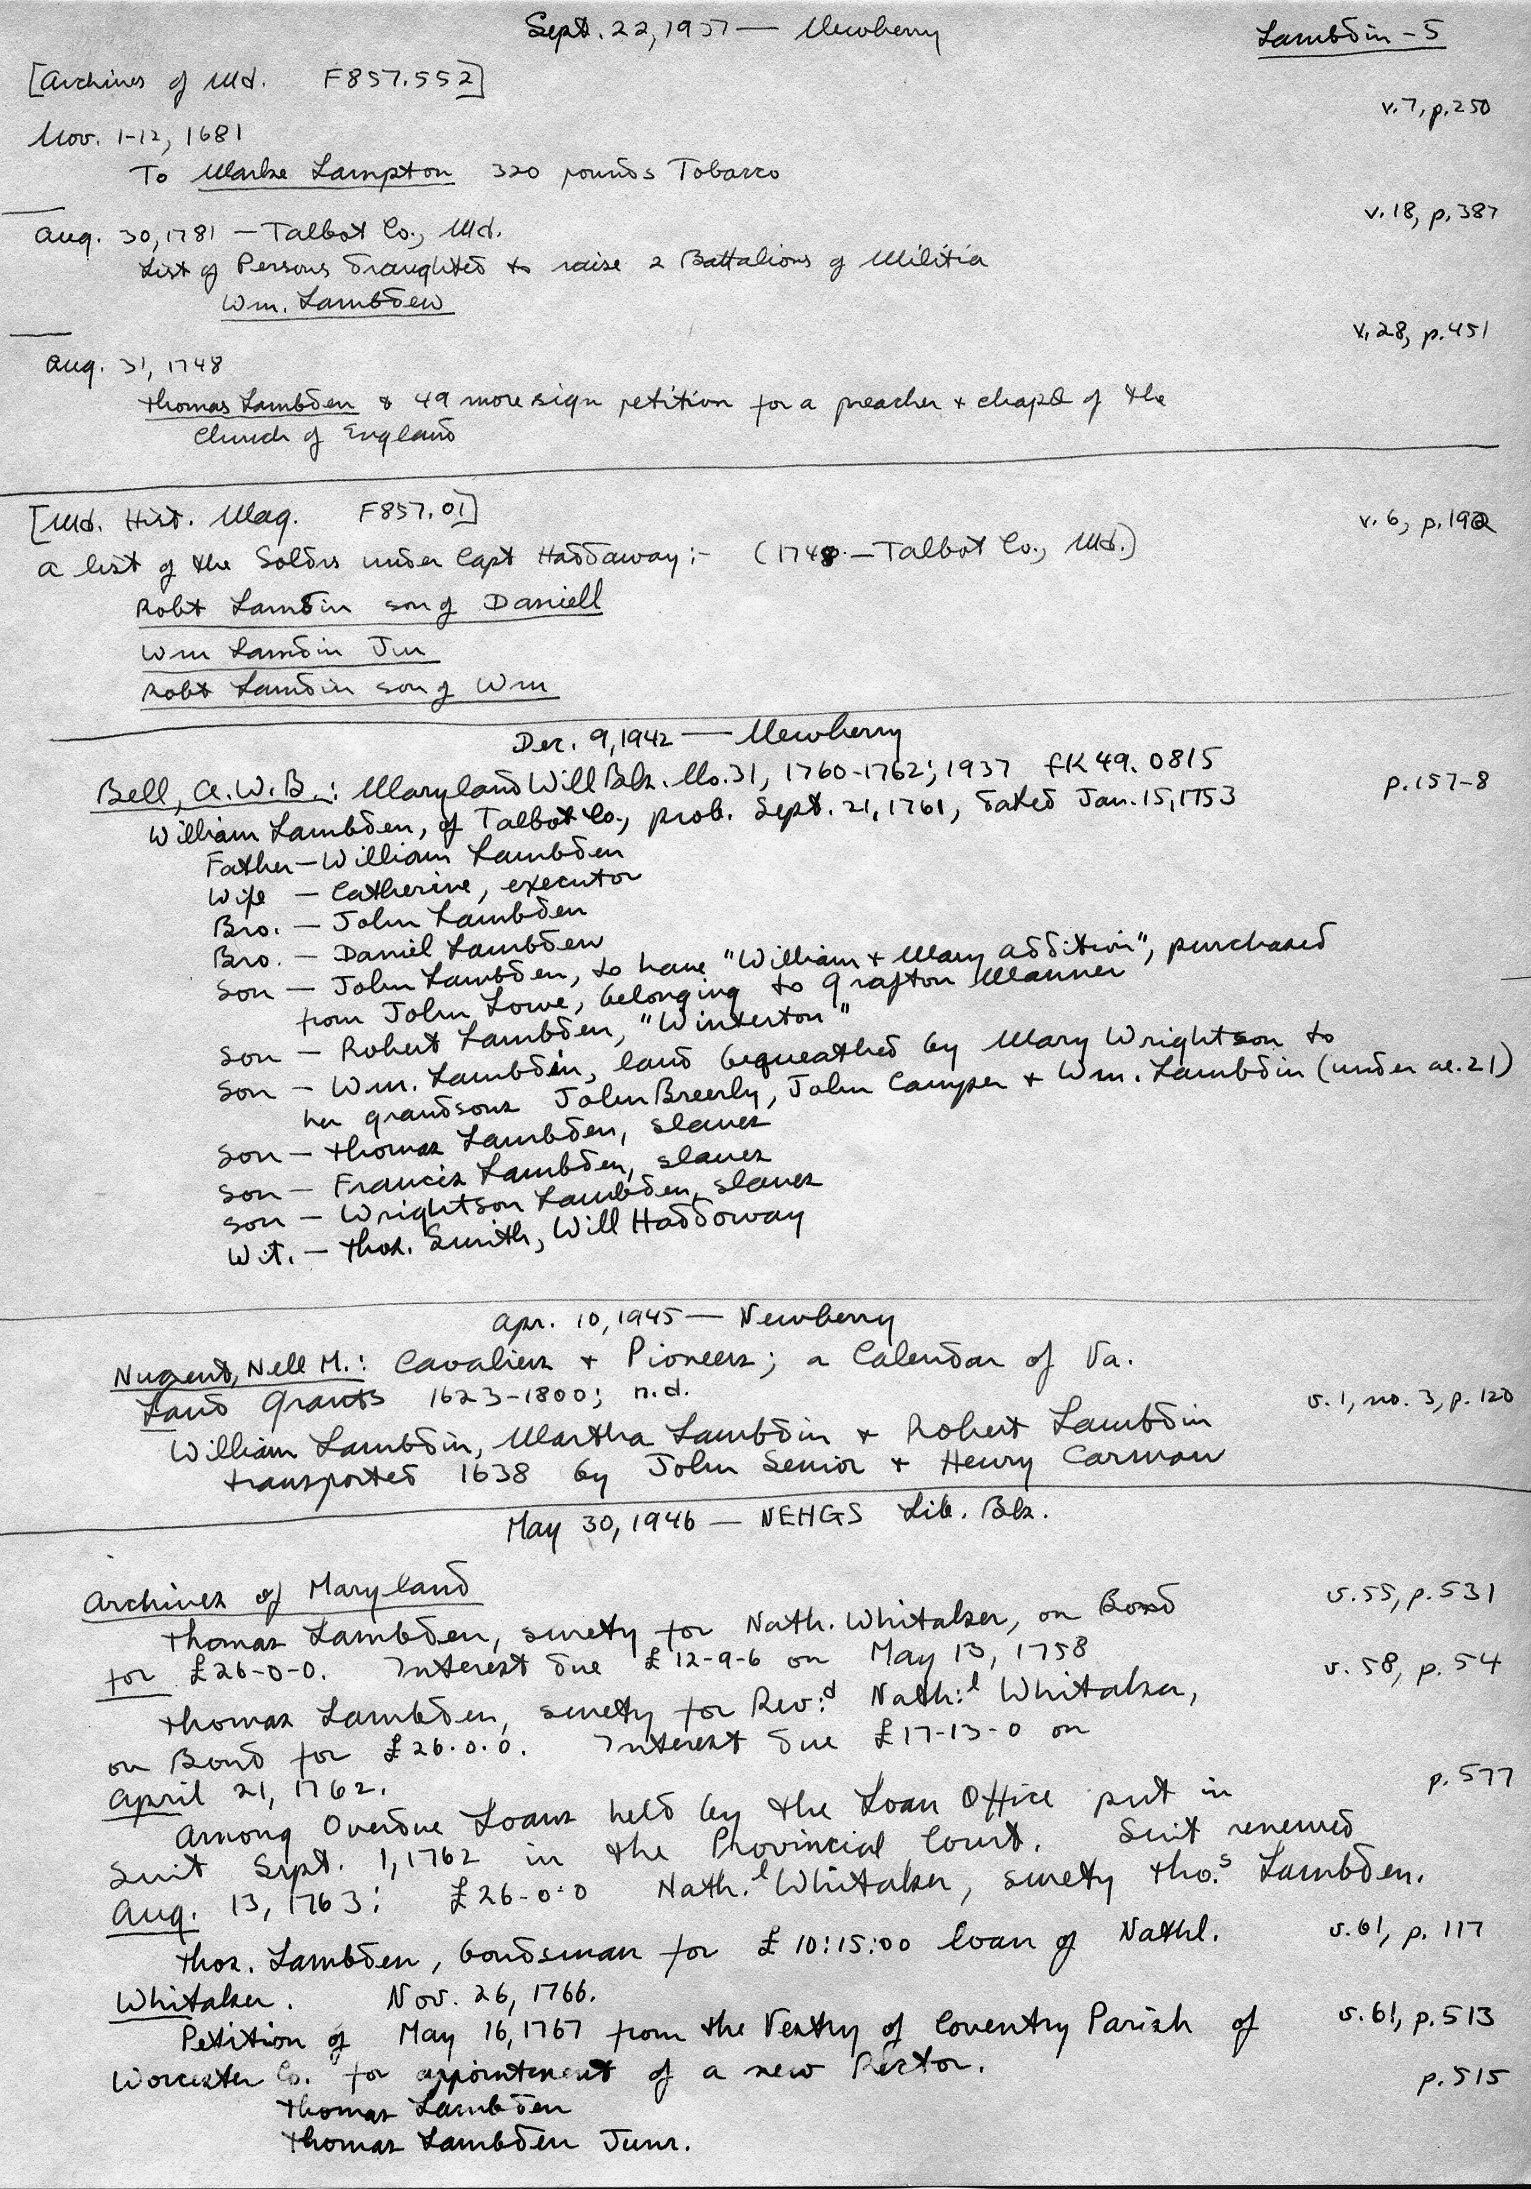 Sept. 22, 1937 — Newberry Lambdin - 5
[Archives of Md. F857.552]
v.7, p.250
Nov. 1-12, 1681
To Marke Lampton 320 pounds Tobacco
v.18, p.387
Aug. 30, 1781 — Talbot Co., Md.
List of Persons draughted to raise 2 Battalions of Militia
Wm. Lambden
v.28, p.451
Aug. 31, 1748
Thomas Lambden & 49 more sign petition for a preacher + chapel of the
Church of England
[Md. Hist. Mag. F857.01] v.6, p.192
A list of the Soldrs under Capt Haddaway:- (1748 — Talbot Co., Md.)
Robt Lambdin son of Daniell
Wm Lamdin Jur
Robt Lamdin son of Wm
Dec. 9, 1942 — Newberry
Bell, A.W.B.: Maryland Will Bk. No. 31, 1760-1762; 1937 fK49.0815 p.157-8
William Lambden, of Talbot Co., prob. Sept. 21, 1761, dated Jan. 15, 1753
Father — William Lambden
Wife — Catherine, executor
Bro. — John Lambden
Bro. — Daniel Lambden
Son — John Lambden, to have "William + Mary Addition", purchased
from John Lowe, belonging to Grafton Manner
Son — Robert Lambden, "Winterton"
Son — Wm. Lambdin, land bequeathed by Mary Wrightson to
her grandsons John Breerly, John Camper + Wm. Lambdin (under ae. 21)
Son — Thomas Lambden, slaves
Son — Francis Lambden, slaves
Son — Wrightson Lambden, slaves
Wit. — Thos. Smith, Will Haddoway
Apr. 10, 1945 — Newberry
Nugent, Nell M.: Cavaliers + Pioneers; a Calendar of Va.
Land Grants 1623-1800; n.d. v.1, no. 3, p. 120
William Lambdin, Martha Lambdin + Robert Lambdin
transported 1638 by John Senior + Henry Carman
May 30, 1946 — NEHGS Lib. Bk.
Archives of Maryland v.55, p.531
Thomas Lambden, surety for Nath. Whitaker, on Bond
for £26-0-0. Interest due £12-9-6 on May 13, 1758
v.58, p.54
Thomas Lambden, surety for Rev:d Nath:l Whitaker,
on Bond for £26.0.0. Interest due £17-13-0 on
April 21, 1762. p.577
Among Overdue Loans held by the Loan Office put in
Suit Sept. 1, 1762 in the Provincial Court. Suit renewed
Aug. 13, 1763: £26-0-0 Nath.l Whitaker, surety Tho.s Lambden.
Thos. Lambden, bondsman for £10:15:00 loan of Nathl. v.61, p. 117
Whitaker. Nov. 26, 1766.
Petition of May 16, 1767 from the Vestry of Coventry Parish of v.61, p.513
Worcester Co. for appointment of a new Rector. p.515
Thomas Lambden
Thomas Lambden Junr.